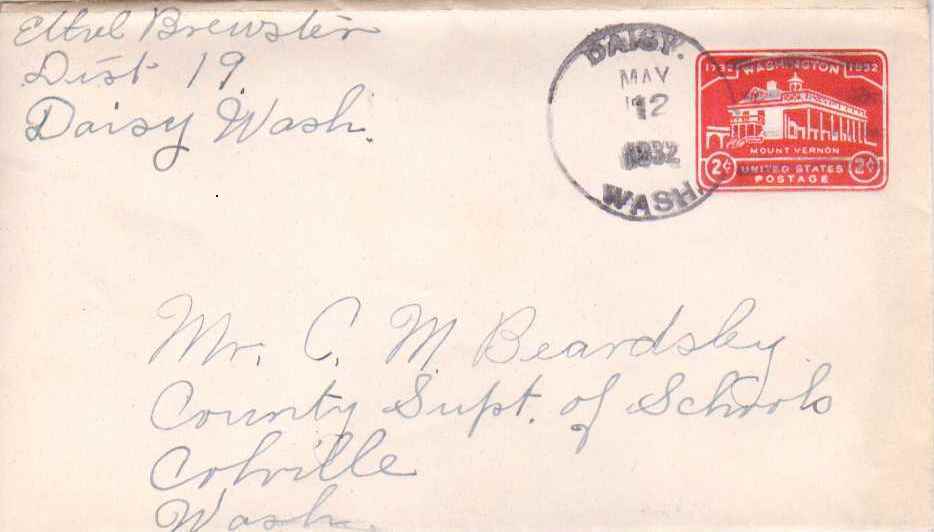 Ethel Brewster
Dist 19
Daisy Wash.
DAISY.
MAY
12
1932
WASH.
1732 WASHINGTON 1932
MOUNT VERNON
2¢ UNITED STATES 2¢
POSTAGE
Mr. C. M Beardsley
County Supt. of Schools
Colville
Wash.